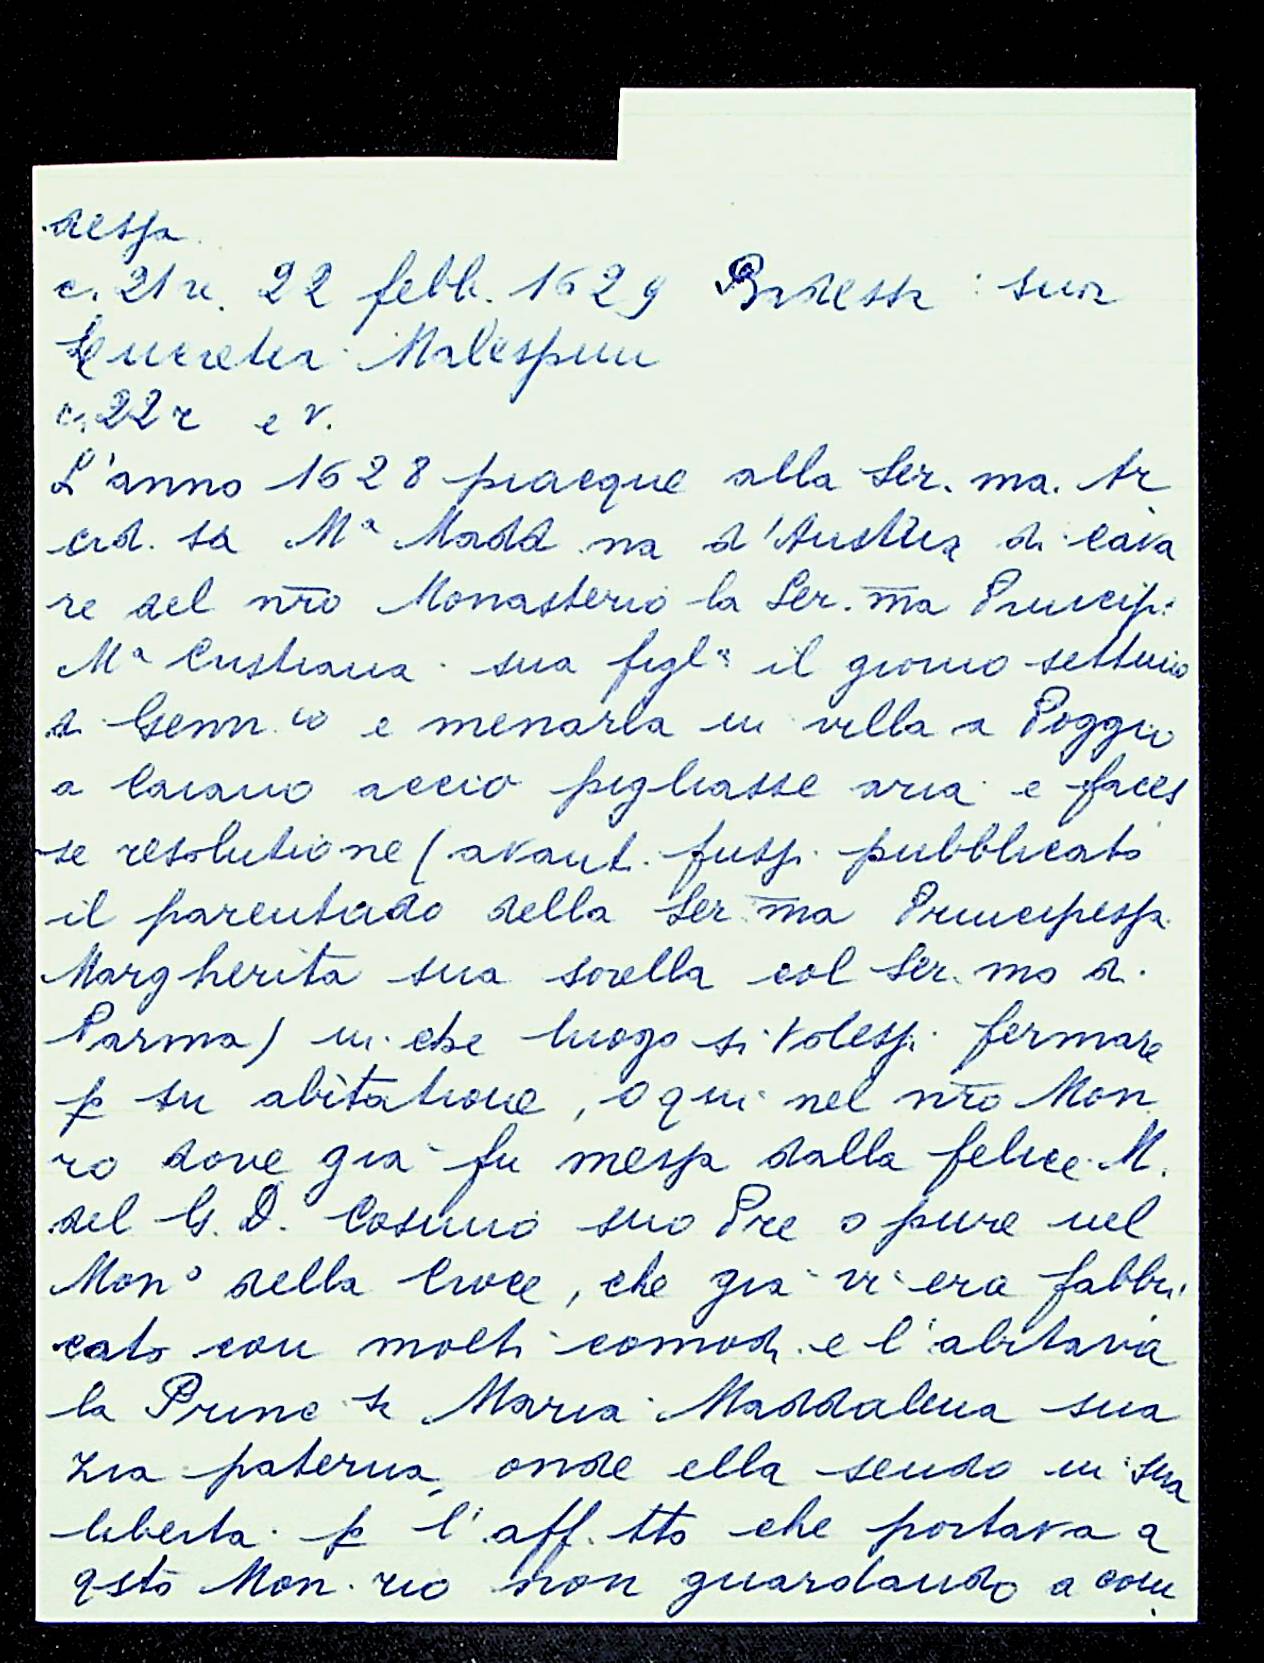 dessa.
c. 21 r. 22 febb. 1629 Badessa: suor
Lucretia Malespini
c. 22 r e v.
L'anno 1628 piacque alla Ser. ma. Ar
cid. sa Mª Madd. na d'Austria di cava
re del nr̄o Monasterio la Ser. m̄a Princip:
Mª Cristiana sua figl.ª il giorno settimo
di Genn.io e menarla in villa a Poggio
a Caiano acciò pigliasse aria e faces
se resolutione (avant. fussi pubblicato
il parentado della Ser. m̄a Principessa
Margherita sua sorella col Ser. mo di
Parma) in che luogo si volessi fermare
p su abitatione, o qui nel nr̄o Mon.
ro dove già fu messa dalla felice M.
del G. D. Cosimo suo Pre o pure nel
Monº della Croce, che già vi era fabbri
cato con molti comodi e l'abitava
la Princ. sa Maria Maddalena sua
zia paterna, onde ella sendo in sua
libertà p l'aff. tto che portava a
qsto Mon. rio non guardando a com